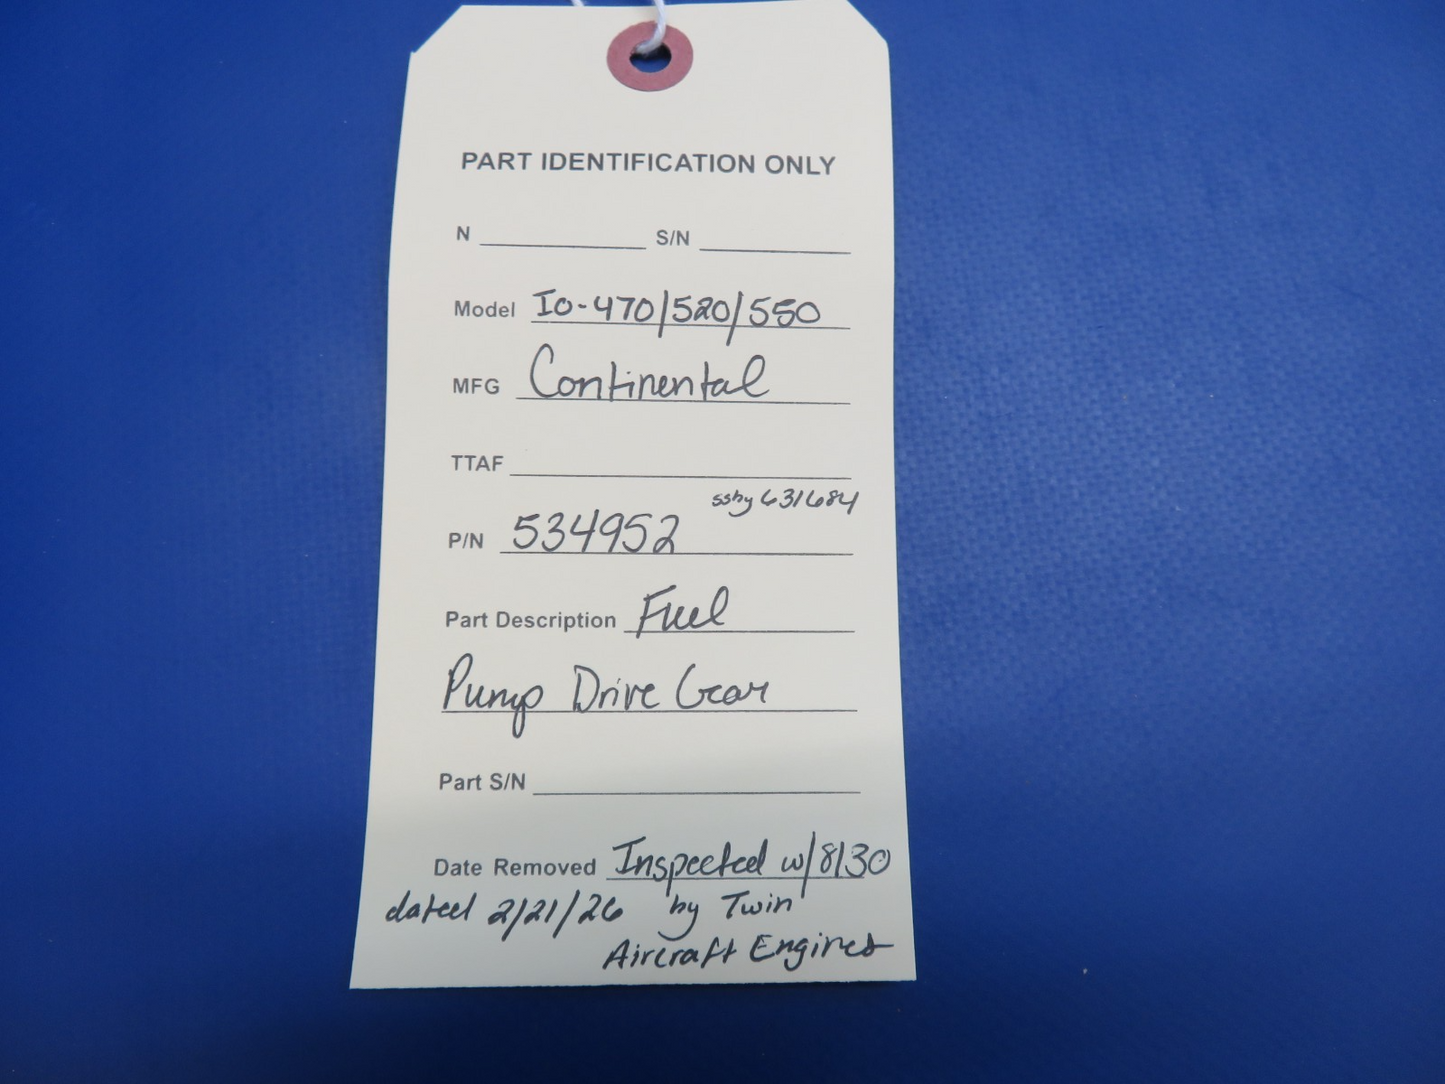 PART IDENTIFICATION ONLY
N S/N
Model IO-470/520/550
MFG Continental
TTAF
ssby 631684
P/N 534952
Part Description Fuel
Pump Drive Gear
Part S/N
Date Removed Inspected w/8130
dated 2/21/26 by Twin
Aircraft Engines